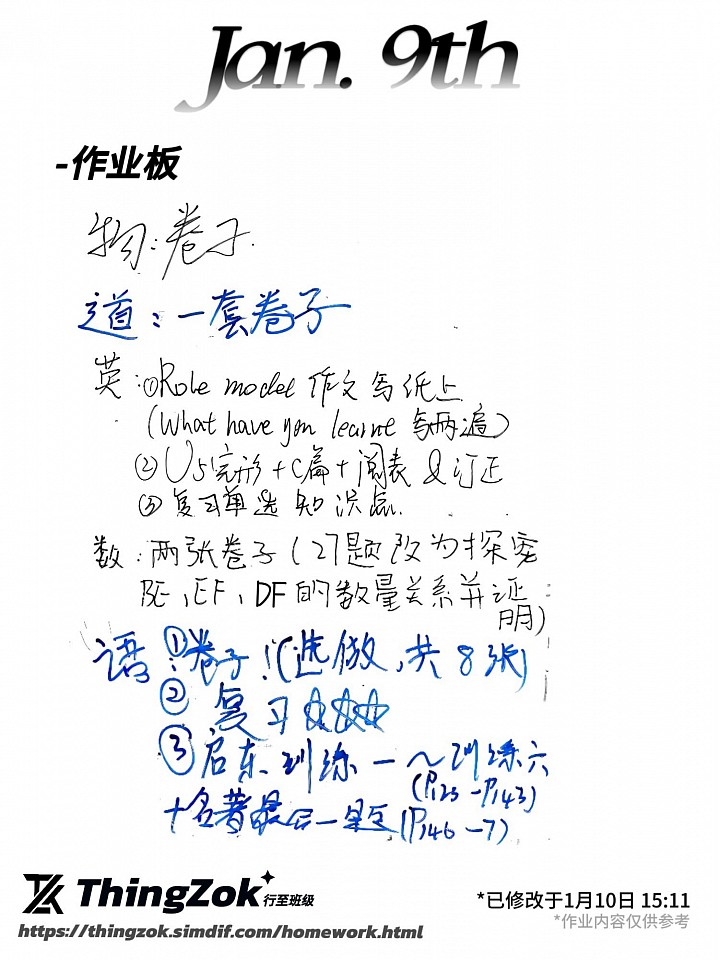 Jan. 9th
-作业板
物:卷子.
道:一套卷子
英:①Role model 作文写纸上
(What have you learnt 写两遍)
②U5完形+C篇+阅表&订正
③复习单选知识点.
数:两张卷子(27题改为探究
BE,EF,DF的数量关系并证
明)
语:①卷子!(选做,共8张)
②复习☆☆☆
③启东训练一~训练六
(P123-P143)
+名著最后一题(P146-7)
ThingZok 行至班级
*已修改于1月10日 15:11
*作业内容仅供参考
https://thingzok.simdif.com/homework.html